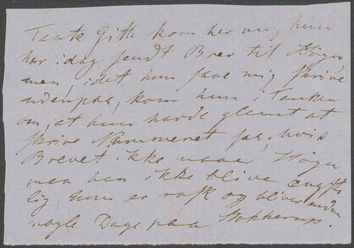 Tante Gitte kom her nu, hun
har i dag sendt Brev til Hogn
men, idet hun saae mig skrive
udenpaa, kom hun i Tanker
om, at hun havde glemt at
skrive Nummeret paa, hvis
Brevet ikke naaer Hogn
maa han ikke blive ængste
lig, hun er rask og bliver endnu
nogle Dage paa